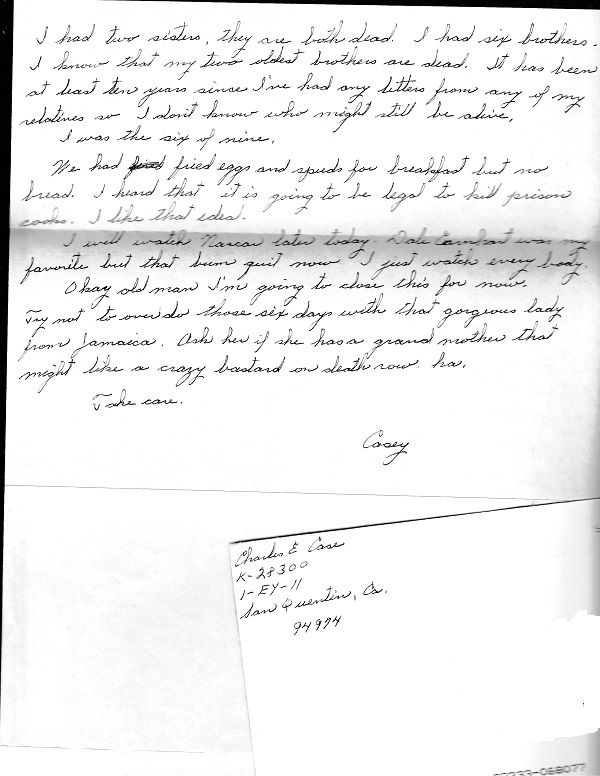 I had two sisters, they are both dead. I had six brothers.
I know that my two oldest brothers are dead. It has been
at least ten years since I've had any letters from any of my
relatives so I don't know who might still be alive.
I was the six of nine.
We had fried eggs and spuds for breakfast but no
bread. I heard that it is going to be legal to kill prison
cooks. I like that idea.
I will watch Nascar later today. Dale Earnhart was my
favorite but that bum quit now I just watch every body.
Okay old man I'm going to close this for now.
Try not to over do those six days with that gorgeous lady
from Jamaica. Ask her if she has a grand mother that
might like a crazy bastard on death row. ha.
Take care.
Casey
Charles E Case
K-28300
1-EY-11
San Quentin, Ca.
94974